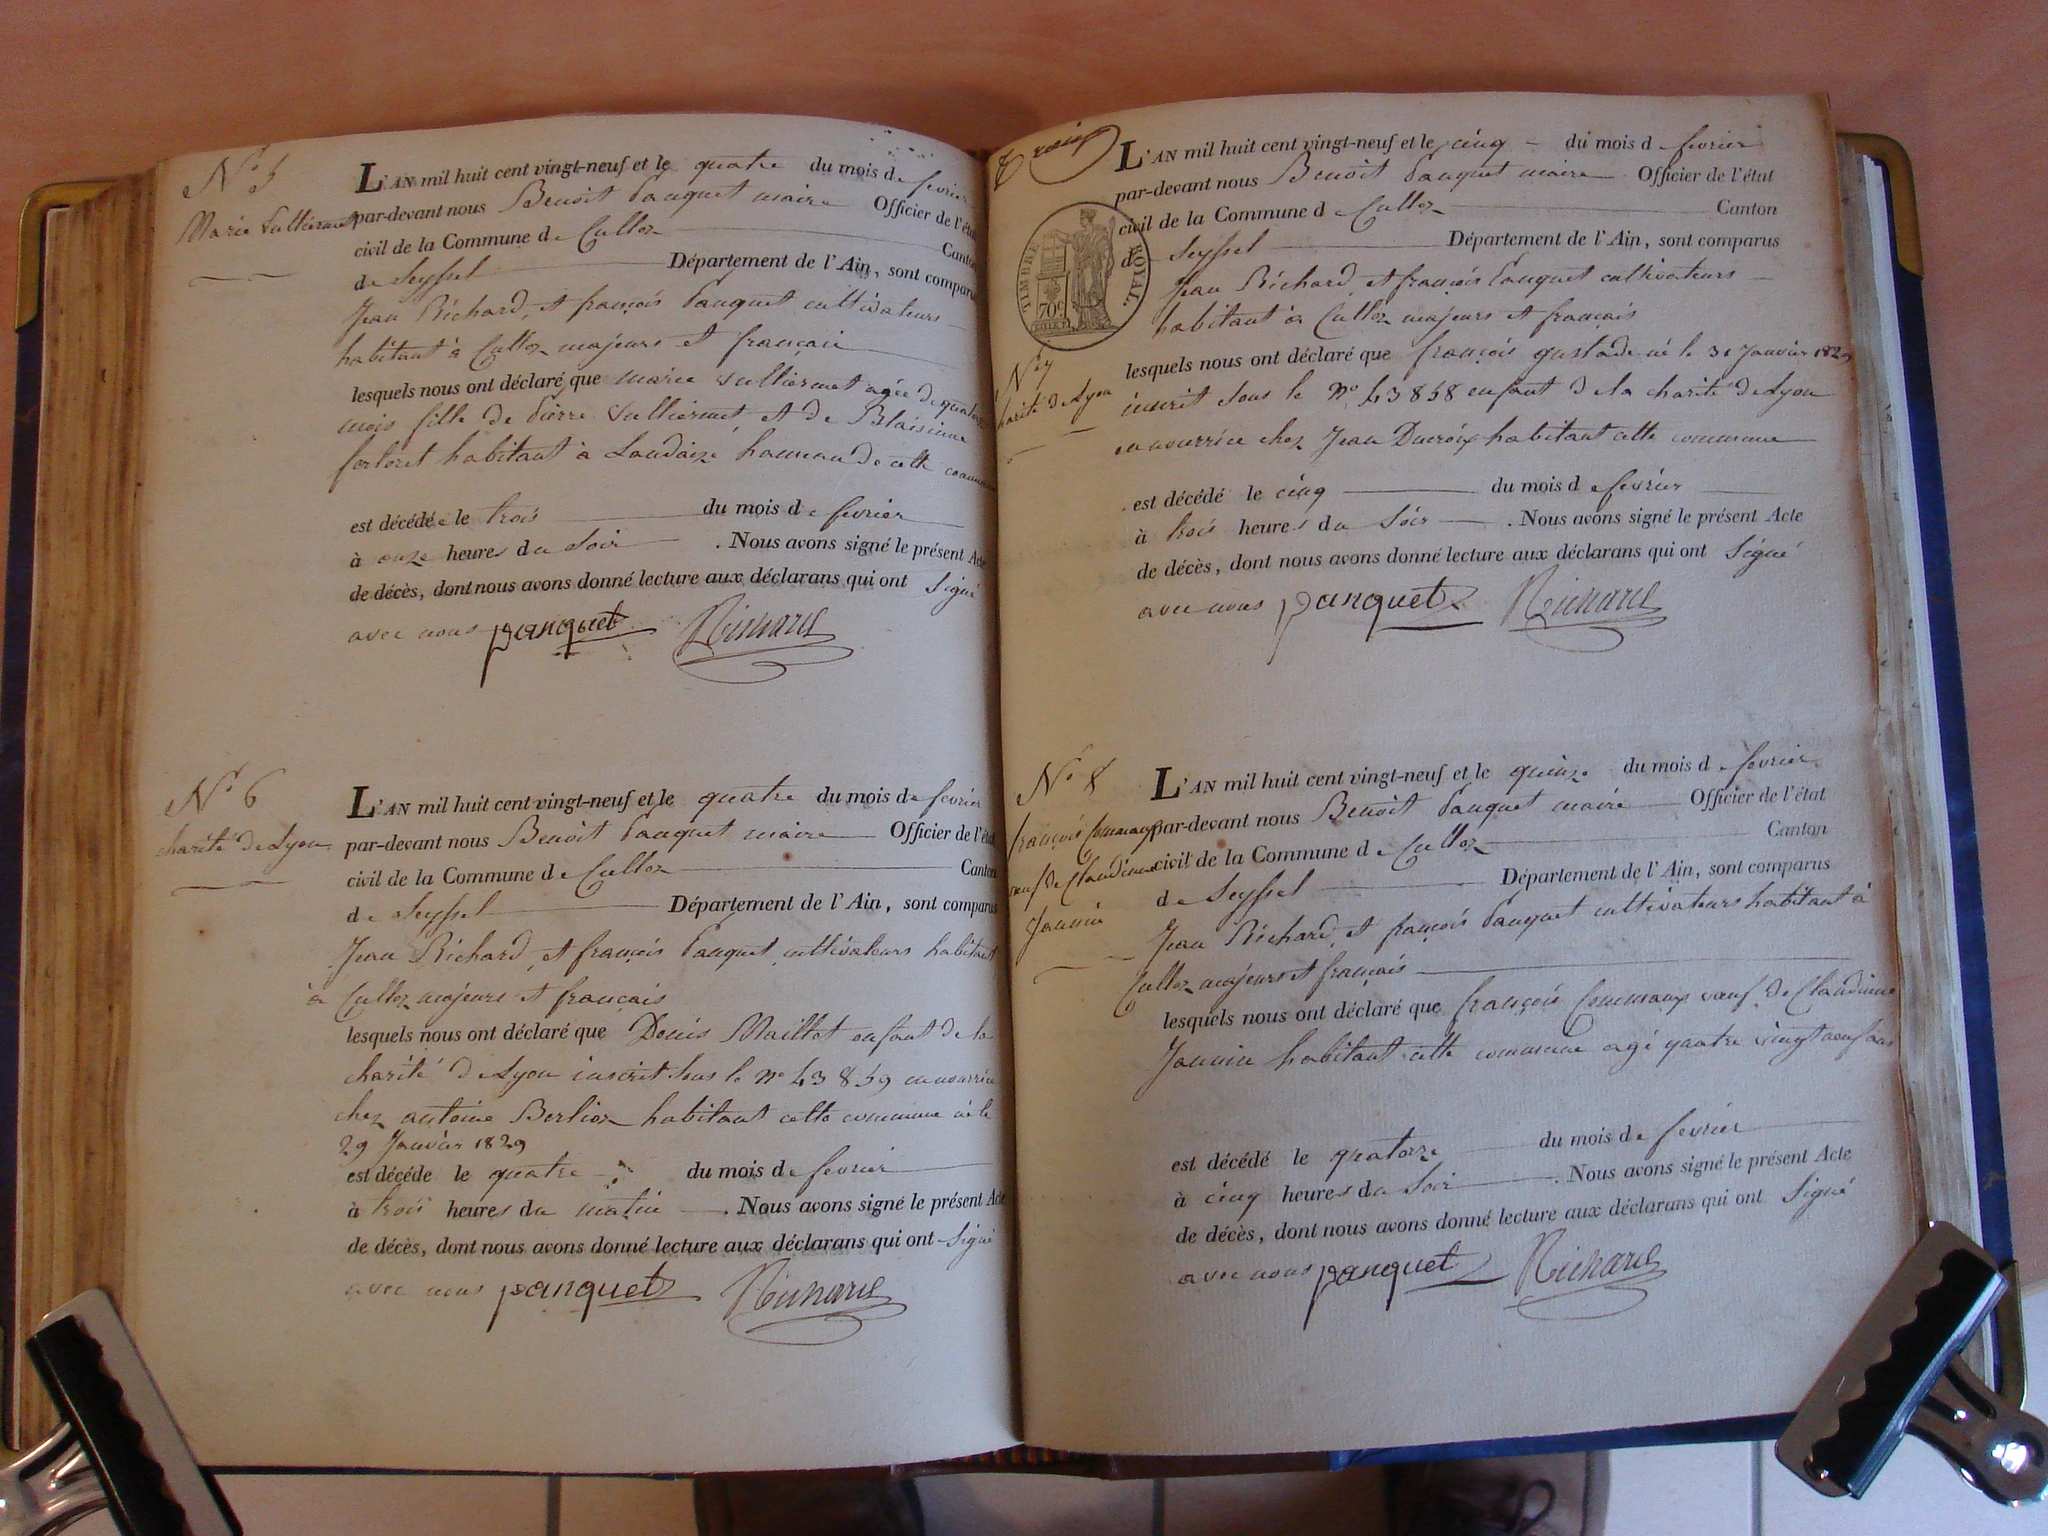 N.º 5
Marie Sulliermet
L'AN mil huit cent vingt-neuf et le quatre du mois de fevrier
par-devant nous Benoit Panquet maire Officier de l'état
civil de la Commune de Culloz Canton
de Seyssel Département de l'Ain, sont comparus
Jean Richard, et françois Panquet cultivateurs
habitant à Culloz majeurs et français
lesquels nous ont déclaré que marie Sulliermet agée de quatorze
mois fille de Pierre Sulliermet et de Blaisinne
forloret habitant à Landaize hameau de cette commune
est décédée le trois du mois de fevrier
à onze heures du Soir . Nous avons signé le présent Acte
de décès, dont nous avons donné lecture aux déclarans qui ont Signé
avec nous panquet Richard
N.º 6
charité de Lyon
L'AN mil huit cent vingt-neuf et le quatre du mois de fevrier
par-devant nous Benoit Panquet maire Officier de l'état
civil de la Commune de Culloz Canton
de Seyssel Département de l'Ain, sont comparus
Jean Richard, et françois Panquet cultivateurs habitant
à Culloz majeurs et français
lesquels nous ont déclaré que Denis Maillot enfant de la
charité de Lyon inscrit sous le nº 43859 en nourrice
chez antoine Berlioz habitant cette commune né le
29 Janvier 1829
est décédé le quatre du mois de fevrier
à trois heures du matin . Nous avons signé le présent Acte
de décès, dont nous avons donné lecture aux déclarans qui ont Signé
avec nous panquet Richard
TIMBRE ROYAL.
70c
N.º 7
charité de Lyon
L'AN mil huit cent vingt-neuf et le cinq du mois de fevrier
par-devant nous Benoit Panquet maire Officier de l'état
civil de la Commune de Culloz Canton
de Seyssel Département de l'Ain, sont comparus
Jean Richard, et françois Panquet cultivateurs
habitant à Culloz majeurs et français
lesquels nous ont déclaré que françois gustade né le 31 Janvier 1829
inscrit sous le nº 43858 enfant de la charité de Lyon
en nourrice chez Jean Ducroix habitant cette commune
est décédé le cinq du mois de fevrier
à trois heures du Soir . Nous avons signé le présent Acte
de décès, dont nous avons donné lecture aux déclarans qui ont Signé
avec nous panquet Richard
N.º 8
françois Commaux
veuf de Claudinne
Jannin
L'AN mil huit cent vingt-neuf et le quinze du mois de fevrier
par-devant nous Benoit Panquet maire Officier de l'état
civil de la Commune de Culloz Canton
de Seyssel Département de l'Ain, sont comparus
Jean Richard, et françois Panquet cultivateurs habitant à
Culloz majeurs et français
lesquels nous ont déclaré que françois Commaux veuf de Claudinne
Jannin habitant cette commune agé quatre vingt neuf ans
est décédé le quatorze du mois de fevrier
à cinq heures du Soir . Nous avons signé le présent Acte
de décès, dont nous avons donné lecture aux déclarans qui ont Signé
avec nous panquet Richard